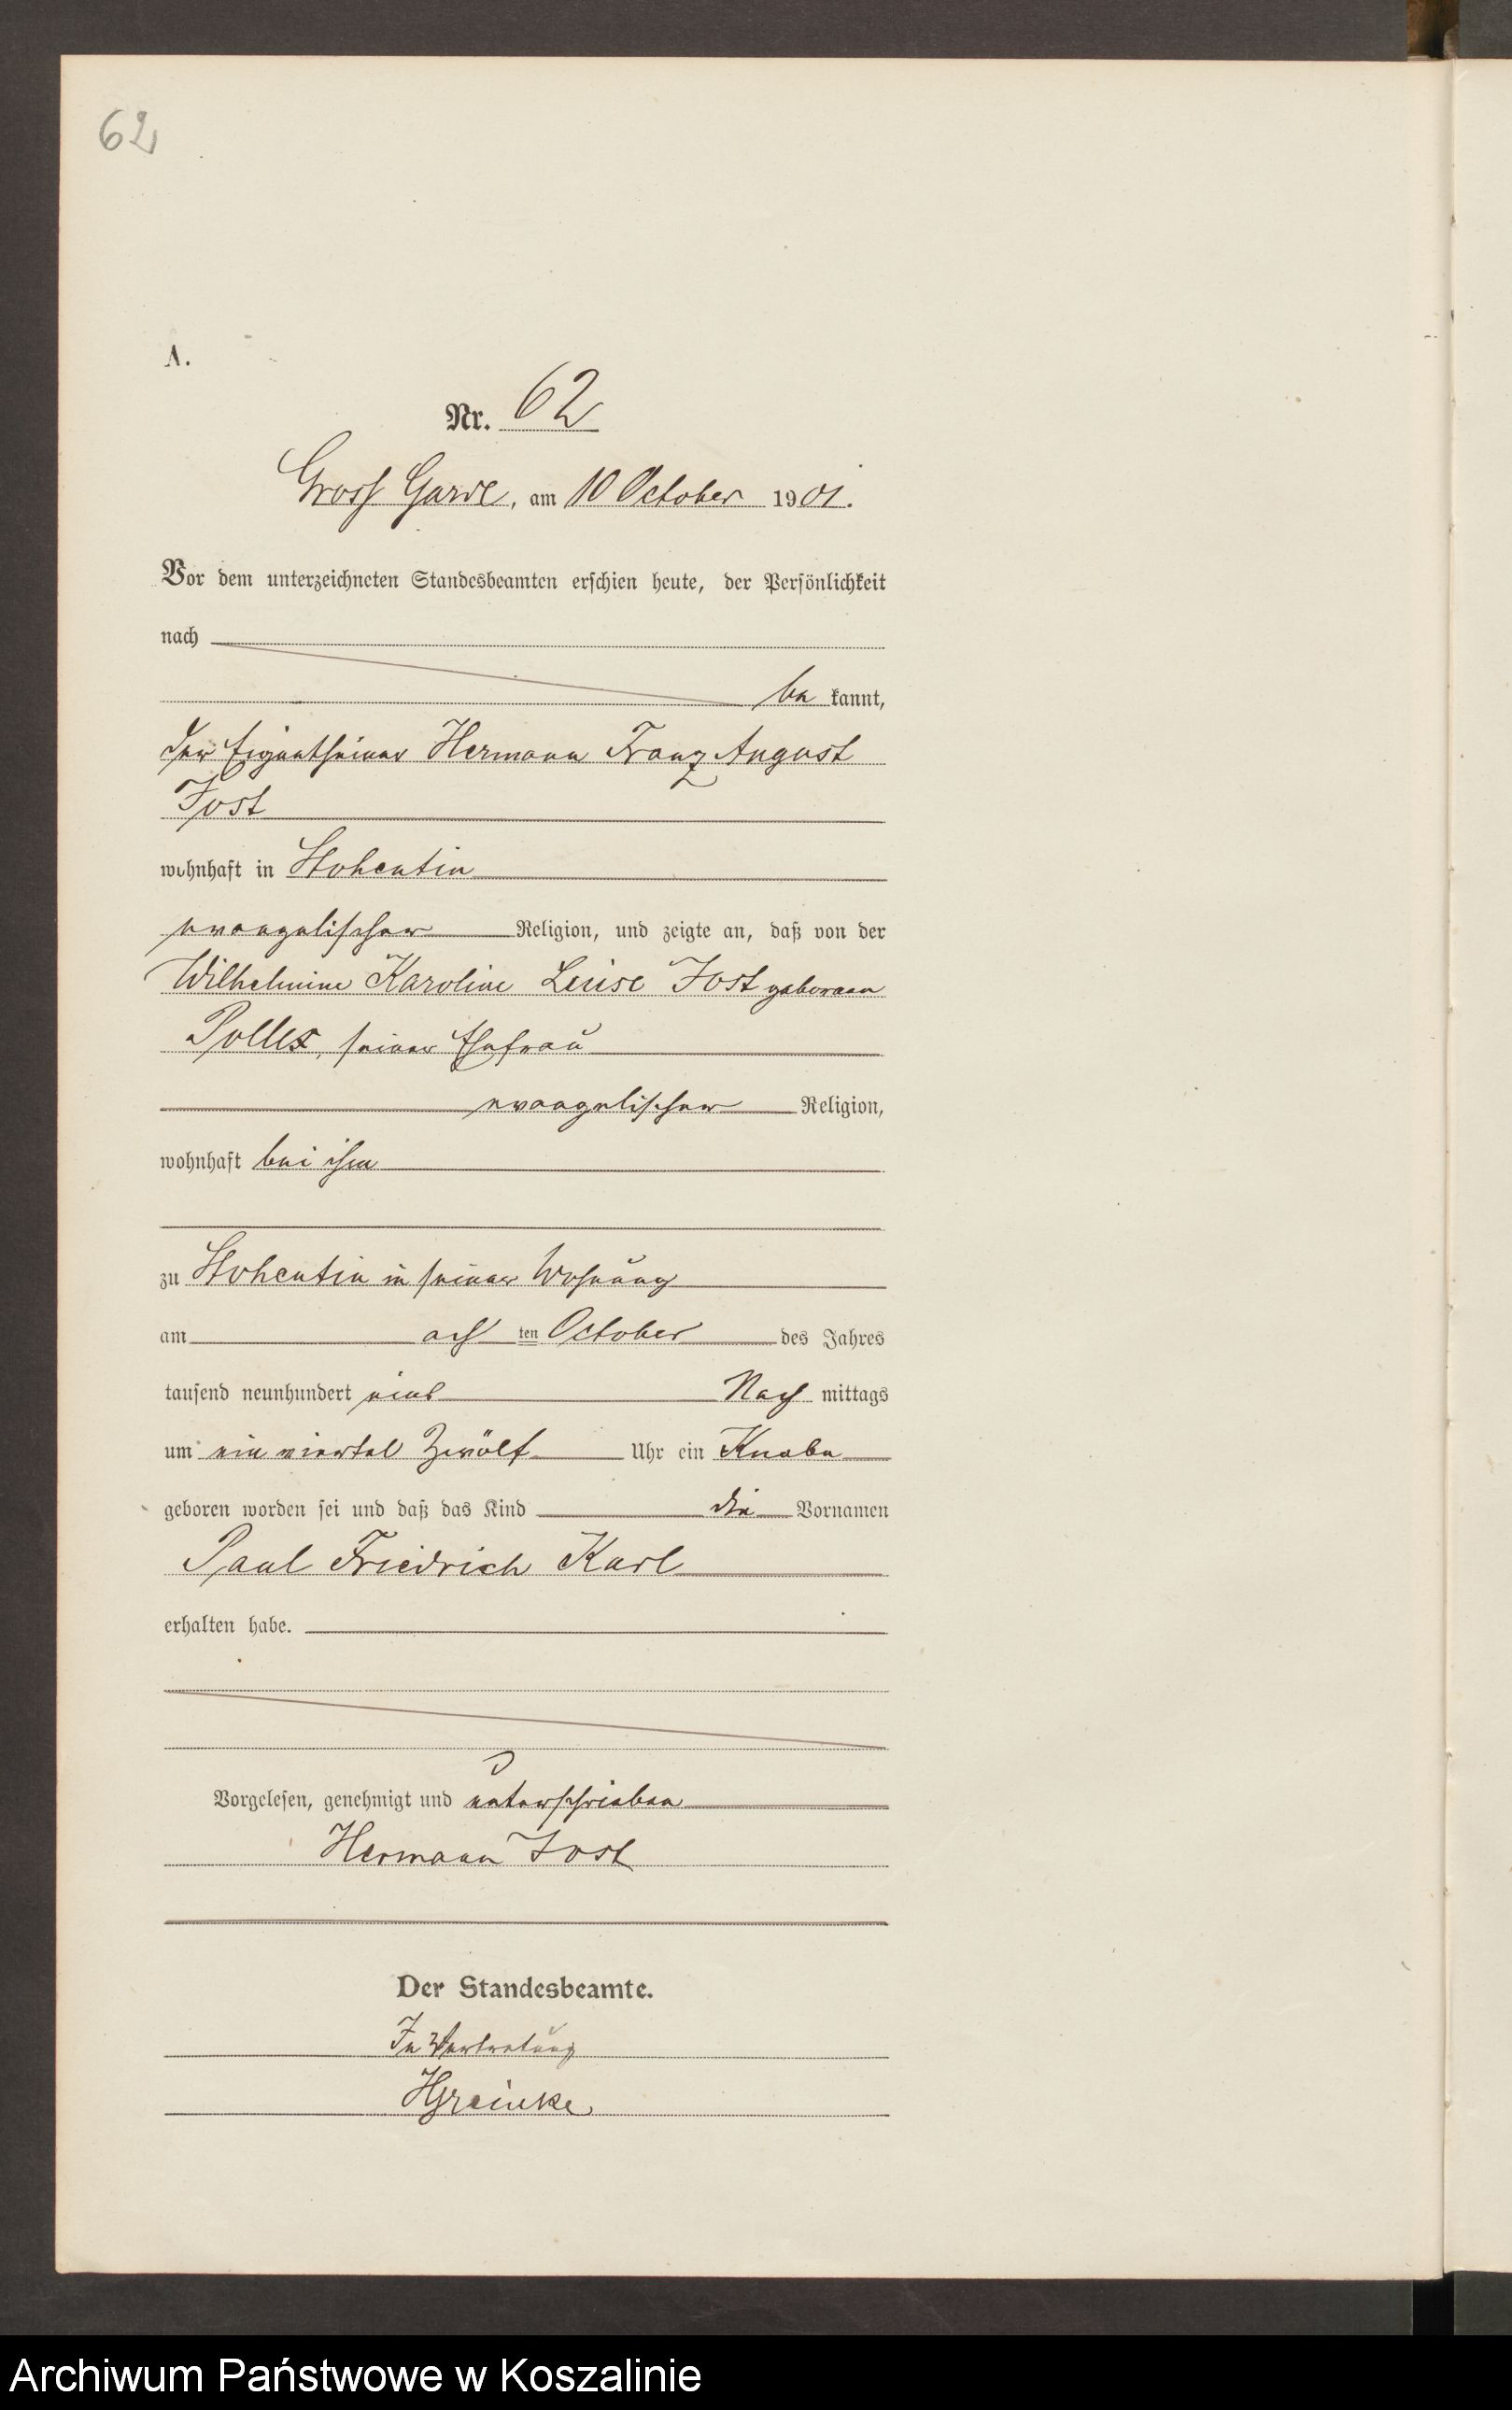 62
A.
Nr. 62
Gross Garde, am 10 October 1901.
Vor dem unterzeichneten Standesbeamten erschien heute, der Persönlichkeit
nach
be kannt,
der Eigenthümer Hermann Franz August
Jost
wohnhaft in Stohentin
evangelischer Religion, und zeigte an, daß von der
Wilhelmine Karoline Luise Jost geboren
Pollex, seiner Ehefrau
evangelischer Religion,
wohnhaft bei ihm
zu Stohentin in seiner Wohnung
am ach ten October des Jahres
tausend neunhundert eins Nach mittags
um ein viertel Zwölf Uhr ein Knabe
geboren worden sei und daß das Kind die Vornamen
Paul Friedrich Karl
erhalten habe.
Vorgelesen, genehmigt und unterschrieben
Hermann Jost
Der Standesbeamte.
In Vertretung
Archiwum Państwowe w Koszalinie